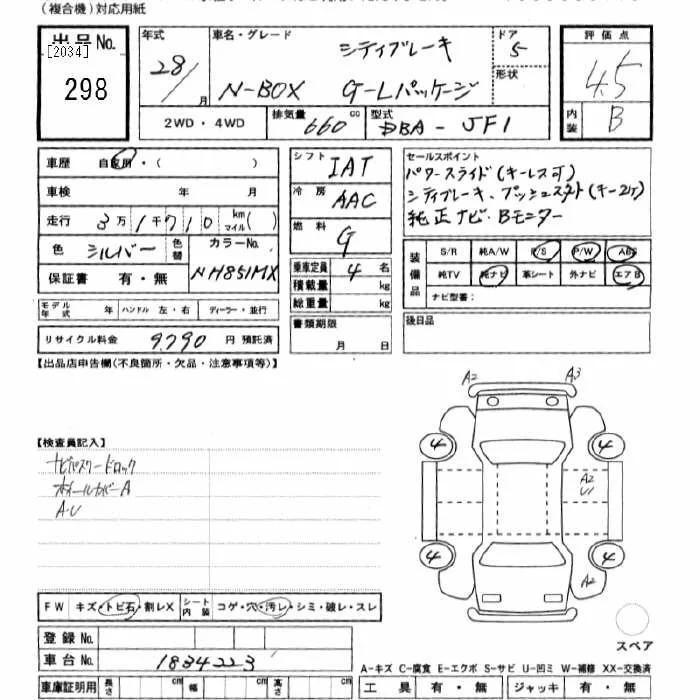 (複合機)対応用紙
出品No. 年式 車名・グレード シティブレーキ ドア 5 評価点
[2034]
298 28/ 月 N-BOX G-Lパッケージ 形状 4.5
2WD・4WD 排気量 660 cc 型式 DBA-JF1 内装 B
車歴 自家用・( ) シフト IAT セールスポイント
パワースライド(キーレス可)
車検 年 月 冷房 AAC シティブレーキ、プッシュスタート(キー2ケ)
走行 3万1千710 km マイル( ) 純正ナビ・Bモニター
燃料 G
色 シルバー 色替 カラーNo. NH851MX 装備品 S/R 純A/W P/S P/W ABS
保証書 有・無 乗車定員 4名 純TV 純ナビ 革シート 外ナビ エアB
積載量 kg ナビ型番:
モデル年式 年 ハンドル 左・右 ディーラー・並行 総重量 kg
リサイクル料金 9,790 円 預託済 書類期限 月 日 後日品
【出品店申告欄(不良箇所・欠品・注意事項等)】
A2 A3
【検査員記入】
4 4
ナビパスワードロック
ホイールカバーA
A2
U1
A・U
4 4
A2
FW キズ・トビ石・割レX シート内装 コゲ・穴・汚レ・シミ・破レ・スレ
登録No.
スペア
車台No. 1834223
A-キズ C-腐食 E-エクボ S-サビ U-凹ミ W-補修 XX-交換済
車庫証明用 長さ cm 幅 cm 高さ cm 工具 有・無 ジャッキ 有・無